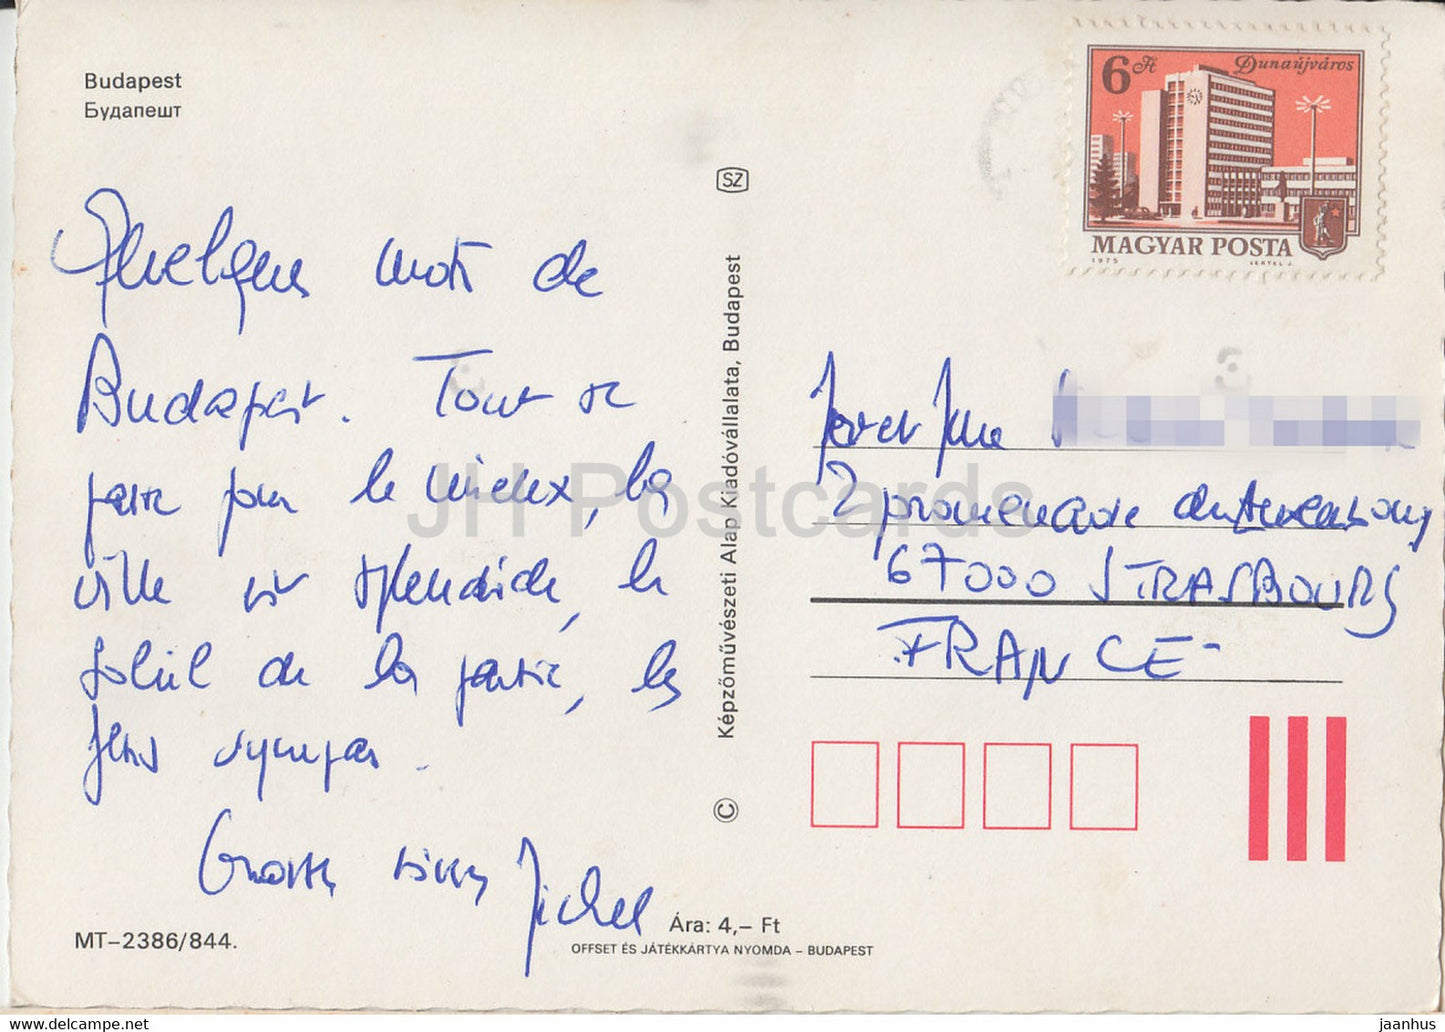 Budapest
Будапешт
Quelques mots de
Budapest. Tout se
passe pour le mieux, la
ville est splendide, le
soleil de la partie, les
gens sympas.
Grosses bises Michel
MT-2386/844.
Ára: 4,- Ft
OFFSET ÉS JÁTÉKKÁRTYA NYOMDA - BUDAPEST
SZ
© Képzőművészeti Alap Kiadóvállalata, Budapest
6 Ft Dunaújváros
MAGYAR POSTA
1975 VERTEL J.
2 promenade
67000 STRASBOURG
FRANCE-
JH Postcards
www.delcampe.net
jaanhus